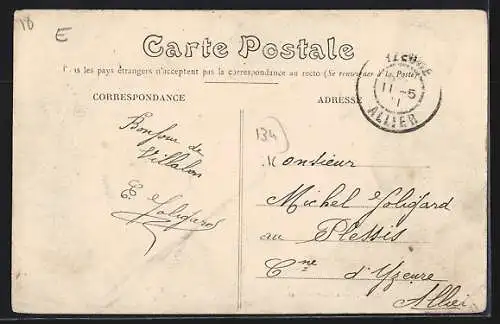 18
E
Carte Postale
Tous les pays étrangers n'acceptent pas la correspondance au recto (Se renseigner à la Poste)
CORRESPONDANCE
ADRESSE
11 -5
ALLIER
134
Bonjour de
Villalon
E. Joligard
Monsieur
Michel Joligard
au Plessis
Cne d'Yzeure
Allier